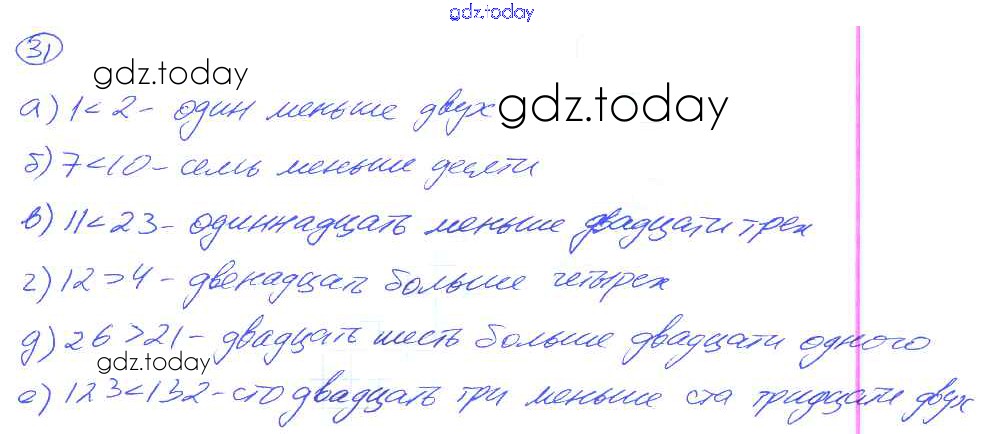 gdz.today
31
gdz.today
а) 1<2 - один меньше двух gdz.today
б) 7<10 - семь меньше десяти
в) 11<23 - одиннадцать меньше двадцати трех
г) 12>4 - двенадцать больше четырех
д) 26>21 - двадцать шесть больше двадцати одного
gdz.today
е) 123<132 - сто двадцать три меньше ста тридцати двух